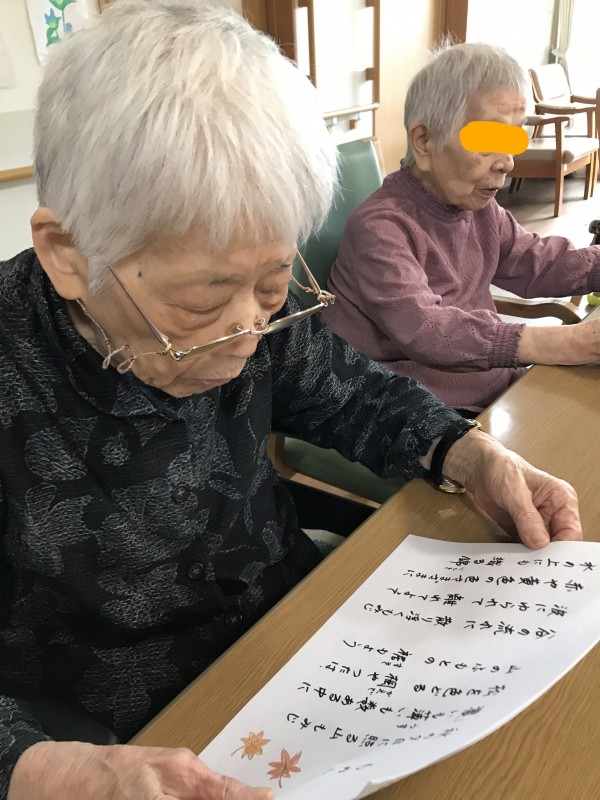 秋の夕日に照る山もみじ
濃いも薄いも数ある中に
松を色どる楓やつたは
山のふもとの裾もよう
谷の流れに散り浮くもみじ
波にゆられて離れてよって
赤や黄色の色さまざまに
水の上にも織る錦